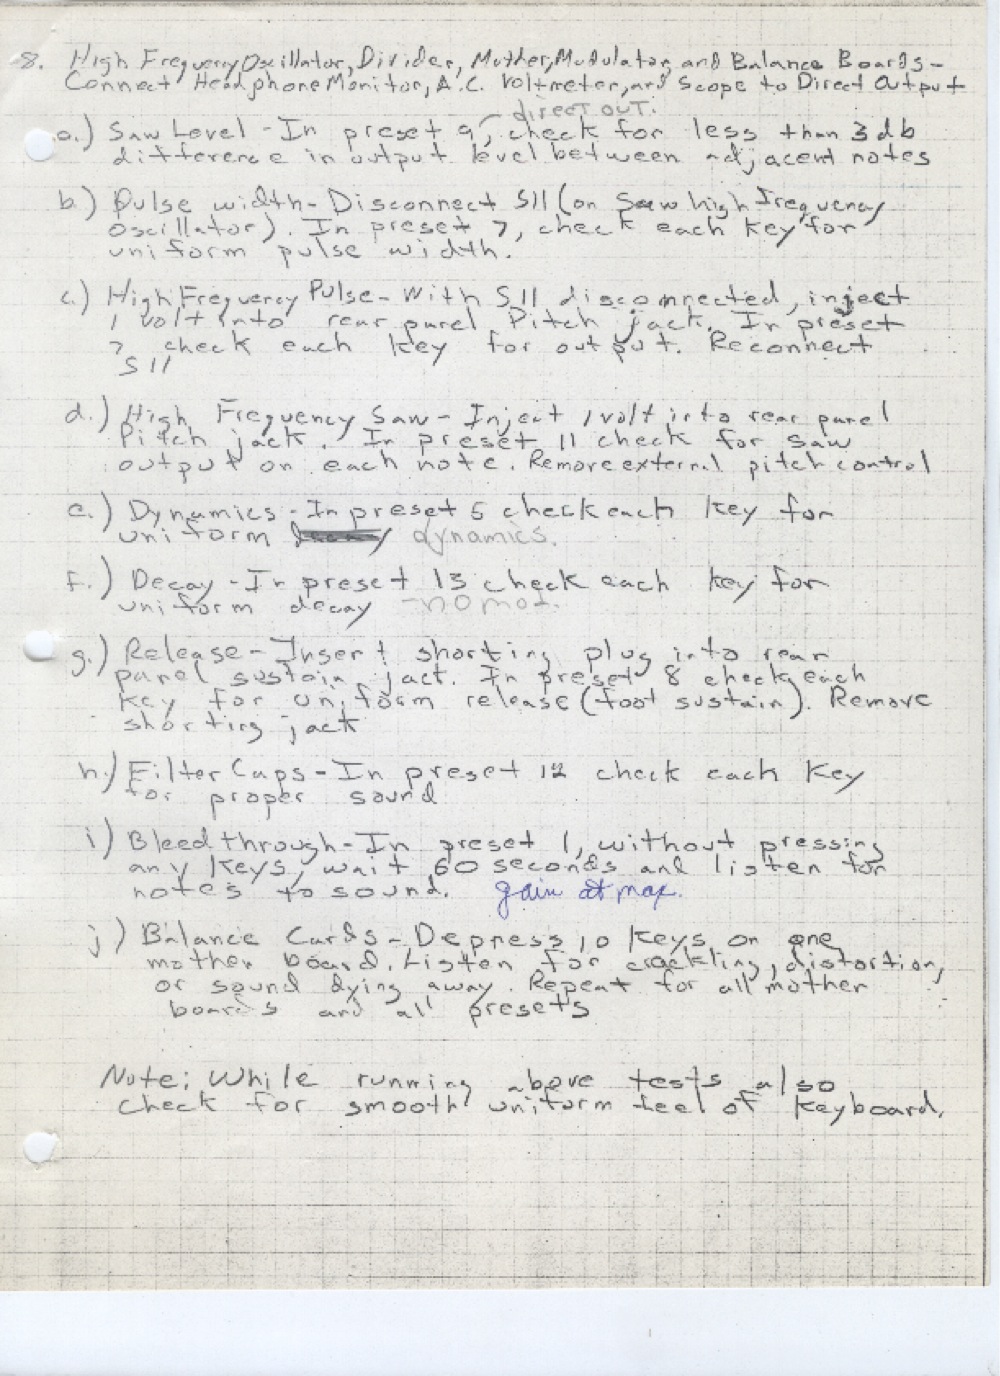 8. High Frequency Oscillator, Divider, Mother, Modulator, and Balance Boards-
Connect Headphone Monitor, A.C. Voltmeter, and Scope to Direct Output
direct out.
a.) Saw Level - In preset 9, check for less than 3 db
difference in output level between adjacent notes
b.) Pulse width - Disconnect S11 (on Saw high frequency
oscillator). In preset 7, check each key for
uniform pulse width.
c.) High Frequency Pulse - With S11 disconnected, inject
1 volt into rear panel Pitch jack. In preset
7 check each key for output. Reconnect
S11
d.) High Frequency Saw - Inject 1 volt into rear panel
Pitch jack. In preset 11 check for saw
output on each note. Remove external pitch control
e.) Dynamics - In preset 5 check each key for
uniform dynamics.
f.) Decay - In preset 13 check each key for
uniform decay - no mod.
g.) Release - Insert shorting plug into rear
panel sustain jact. In preset 8 check each
key for uniform release (foot sustain). Remove
shorting jack
h.) Filter Caps - In preset 12 check each key
for proper sound
i) Bleedthrough - In preset 1, without pressing
any keys, wait 60 seconds and listen for
notes to sound. gain at max.
j) Balance Cards - Depress 10 keys on one
mother board. Listen for crackling, distortion,
or sound dying away. Repeat for all mother
boards and all presets
Note: While running above tests also
check for smooth uniform feel of keyboard.